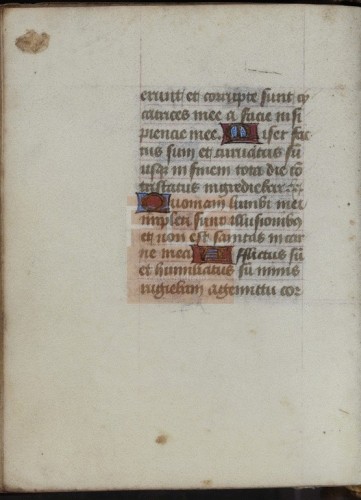 erunt et corrupte sunt cy
catrices mee a facie insi
piencie mee. Miser fac
tus sum et curvatus sū
usqȝ in finem tota die cō
tristatus ingrediebar
Quoniam lumbi mei
impleti sunt illusionibȝ
et non est sanitas in car
ne mea Afflictus sū
et humiliatus sū nimis
rugiebam a gemittu cor